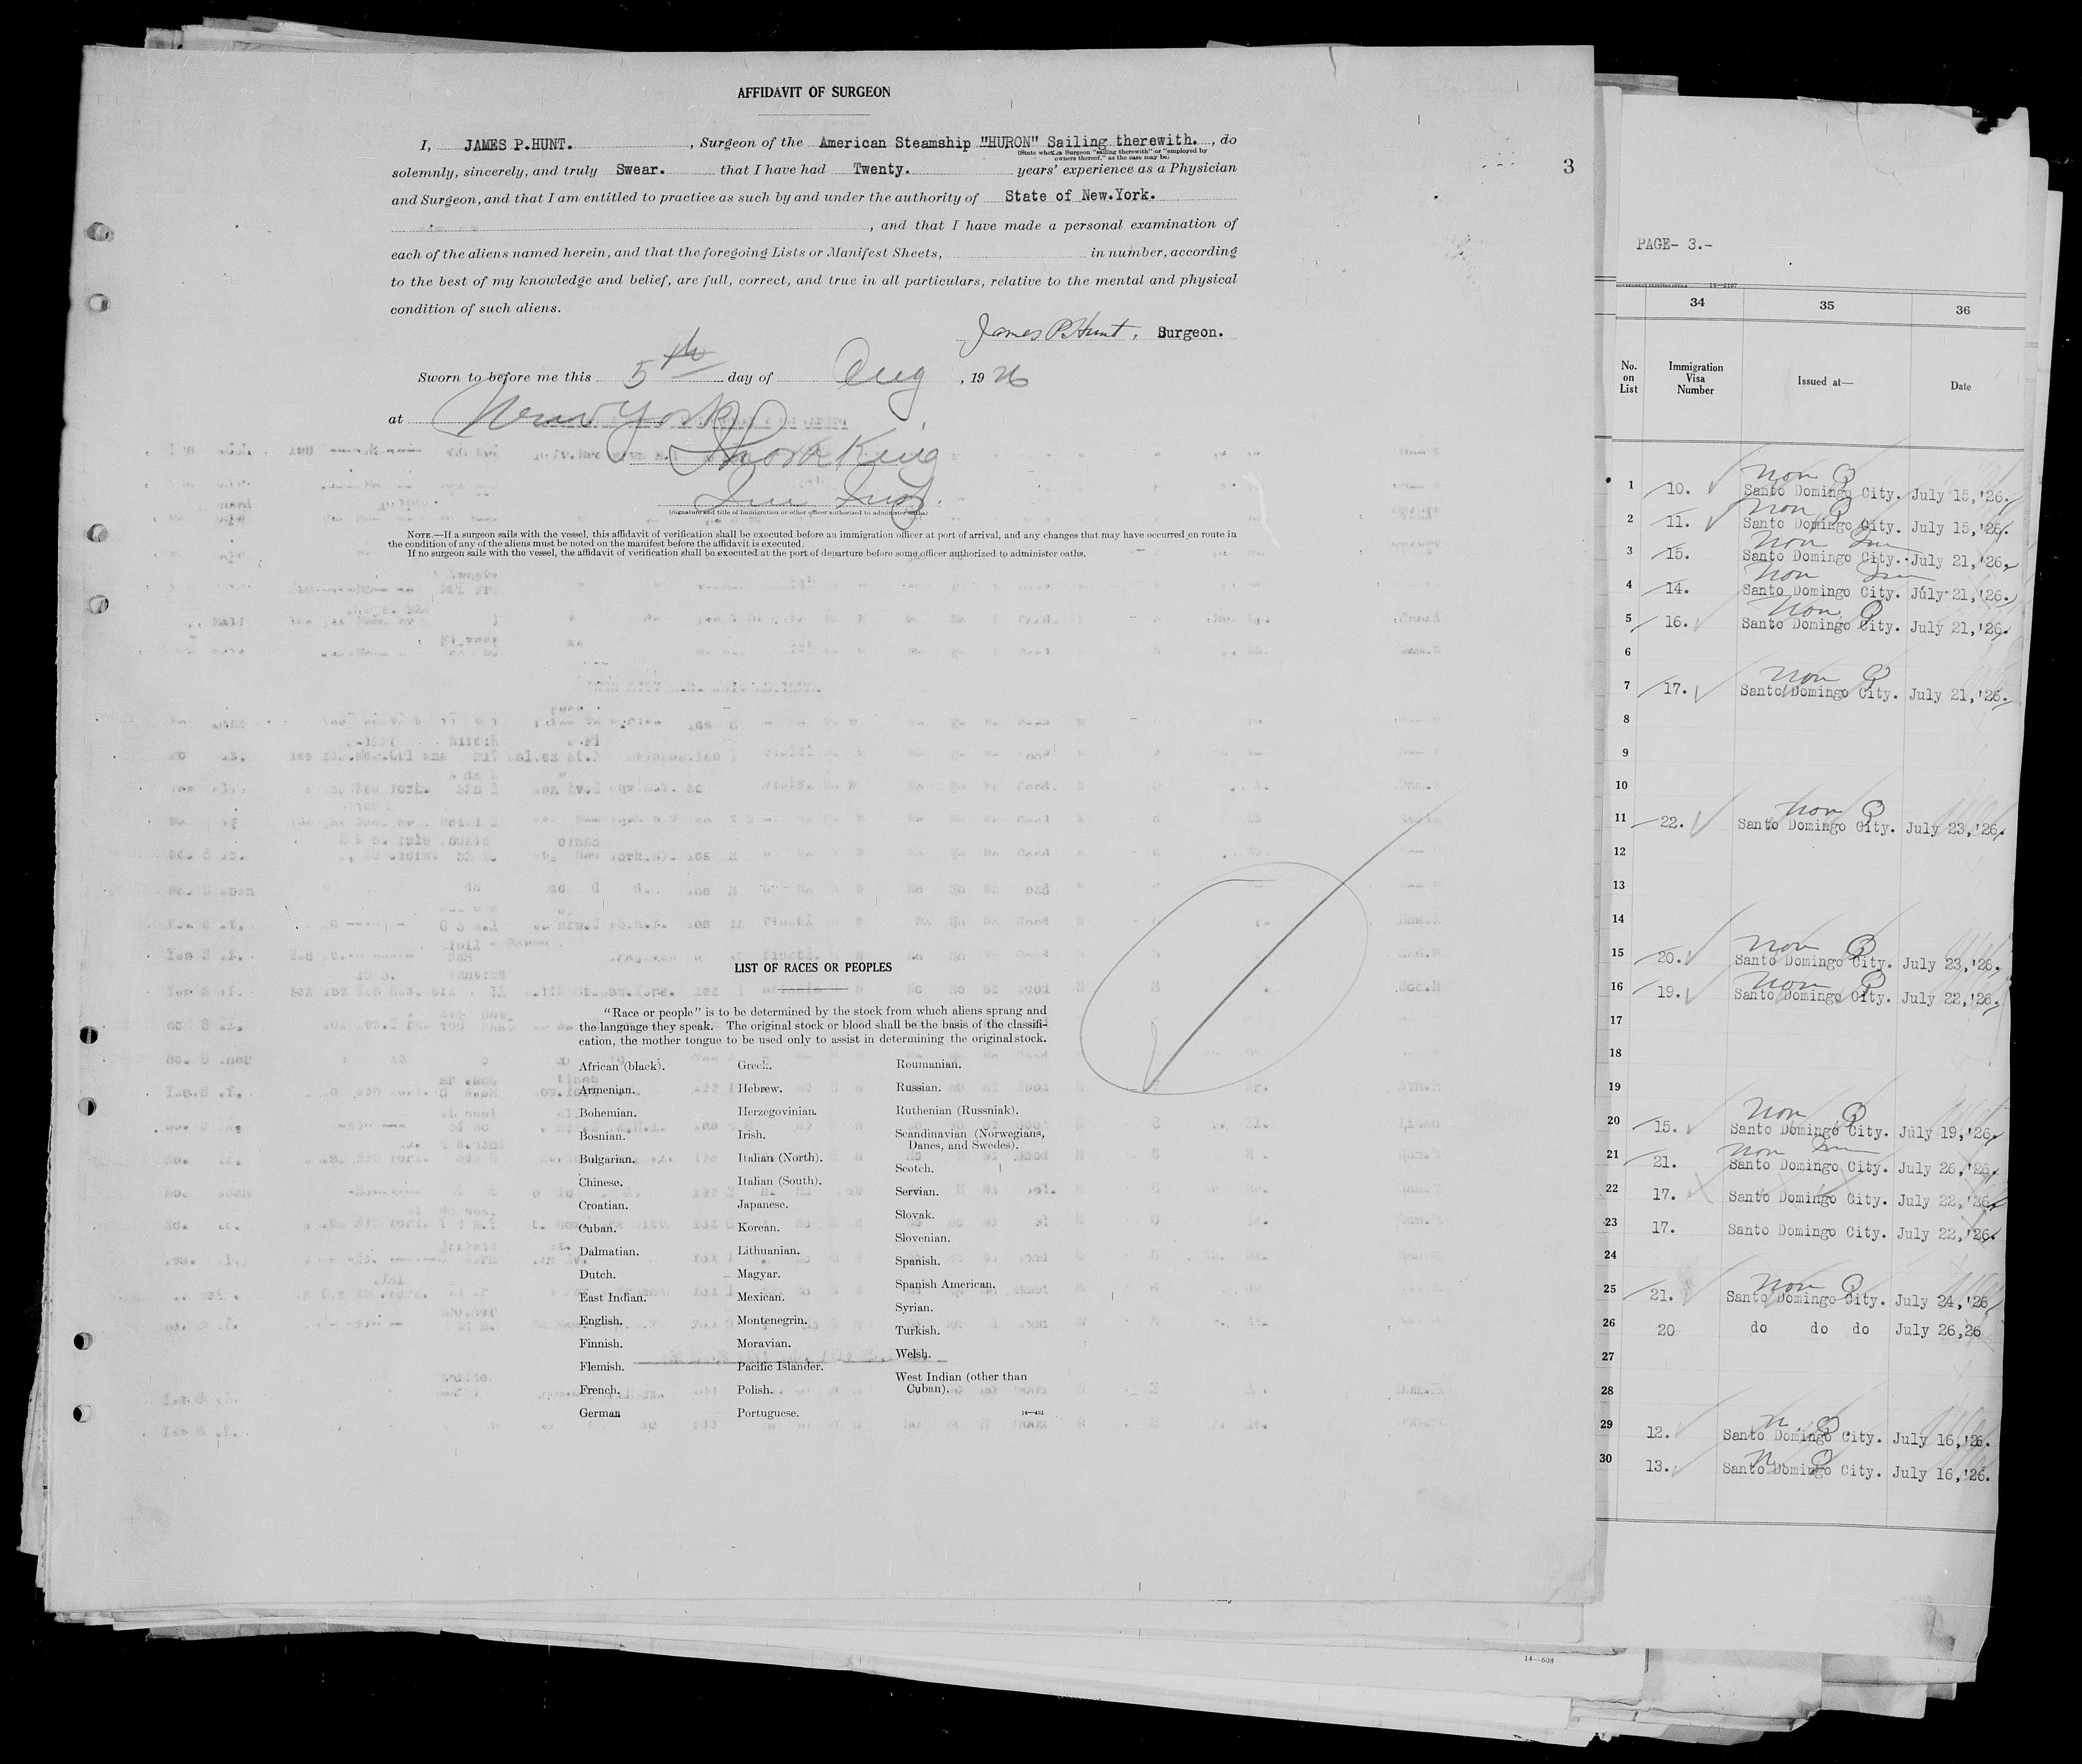 AFFIDAVIT OF SURGEON
I, JAMES P.HUNT. , Surgeon of the American Steamship "HURON" Sailing therewith. , do
(State whether Surgeon "sailing therewith" or "employed by
owners thereof," as the case may be)
solemnly, sincerely, and truly Swear. that I have had Twenty. years' experience as a Physician
and Surgeon, and that I am entitled to practice as such by and under the authority of State of New.York.
, and that I have made a personal examination of
each of the aliens named herein, and that the foregoing Lists or Manifest Sheets, in number, according
to the best of my knowledge and belief, are full, correct, and true in all particulars, relative to the mental and physical
condition of such aliens.
James P. Hunt, Surgeon.
Sworn to before me this 5th day of Aug , 1926
at New York
King
(Signature and title of immigration or other officer authorized to administer oaths)
NOTE.—If a surgeon sails with the vessel, this affidavit of verification shall be executed before an immigration officer at port of arrival, and any changes that may have occurred en route in
the condition of any of the aliens must be noted on the manifest before the affidavit is executed.
If no surgeon sails with the vessel, the affidavit of verification shall be executed at the port of departure before some officer authorized to administer oaths.
3
LIST OF RACES OR PEOPLES
"Race or people" is to be determined by the stock from which aliens sprang and
the language they speak. The original stock or blood shall be the basis of the classifi-
cation, the mother tongue to be used only to assist in determining the original stock.
African (black).
Armenian.
Bohemian.
Bosnian.
Bulgarian.
Chinese.
Croatian.
Cuban.
Dalmatian.
Dutch.
East Indian.
English.
Finnish.
Flemish.
French.
German
Greek.
Hebrew.
Herzegovinian.
Irish.
Italian (North).
Italian (South).
Japanese.
Korean.
Lithuanian.
Magyar.
Mexican.
Montenegrin.
Moravian.
Pacific Islander.
Polish.
Portuguese.
Roumanian.
Russian.
Ruthenian (Russniak).
Scandinavian (Norwegians,
Danes, and Swedes).
Scotch.
Servian.
Slovak.
Slovenian.
Spanish.
Spanish American.
Syrian.
Turkish.
Welsh.
West Indian (other than
Cuban).
14—431
PAGE- 3.-
14—2197
34 35 36
No. on List Immigration Visa Number Issued at— Date
Non Q
1 10. Santo Domingo City. July 15,'26.
Non Q
2 11. Santo Domingo City. July 15,'26.
Non Im
3 15. Santo Domingo City. July 21,'26.
Non Im
4 14. Santo Domingo City. July 21,'26.
Non Q
5 16. Santo Domingo City. July 21,'26.
6
Non Q
7 17. Santo Domingo City. July 21,'26.
8
9
10
Non Q
11 22. Santo Domingo City. July 23,'26.
12
13
14
Non Q
15 20. Santo Domingo City. July 23,'26.
Non Q
16 19. Santo Domingo City. July 22,'26.
17
18
19
Non Q
20 15. Santo Domingo City. July 19,'26.
Non Im
21 21. Santo Domingo City. July 26,'26.
22 17. Santo Domingo City. July 22,'26.
23 17. Santo Domingo City. July 22,'26.
24
Non Q
25 21. Santo Domingo City. July 24,'26
26 20 do do do July 26,26
27
28
N. Q.
29 12. Santo Domingo City. July 16,'26.
N Q
30 13. Santo Domingo City. July 16,'26.
14—608